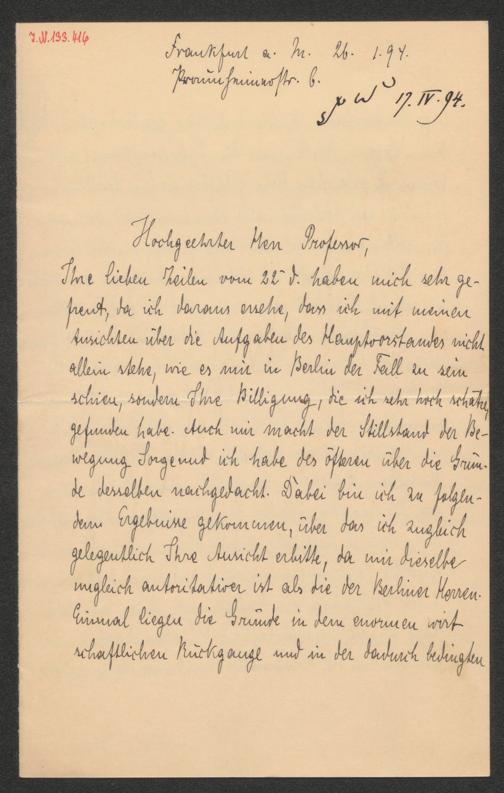 I.N.133.416
Frankfurt a. M. 26. 1. 94.
Praunheimerstr. 6.
17. IV. 94.
Hochgeehrter Herr Professor,
Ihre lieben Zeilen vom 22 d. haben mich sehr ge-
freut, da ich daraus ersehe, dass ich mit meinen
Ansichten über die Aufgaben des Hauptvorstandes nicht
allein stehe, wie es mir in Berlin der Fall zu sein
schien, sondern Ihre Billigung, die ich sehr hoch schätze,
gefunden habe. Auch mir macht der Stillstand der Be-
wegung Sorge und ich habe des öfteren über die Grün-
de desselben nachgedacht. Dabei bin ich zu folgen-
dem Ergebnisse gekommen, über das ich zugleich
gelegentlich Ihre Ansicht erbitte, da mir dieselbe
ungleich autoritativer ist als die der Berliner Herren.
Einmal liegen die Gründe in dem enormen wirt
schaftlichen Rückgange und in der dadurch bedingten